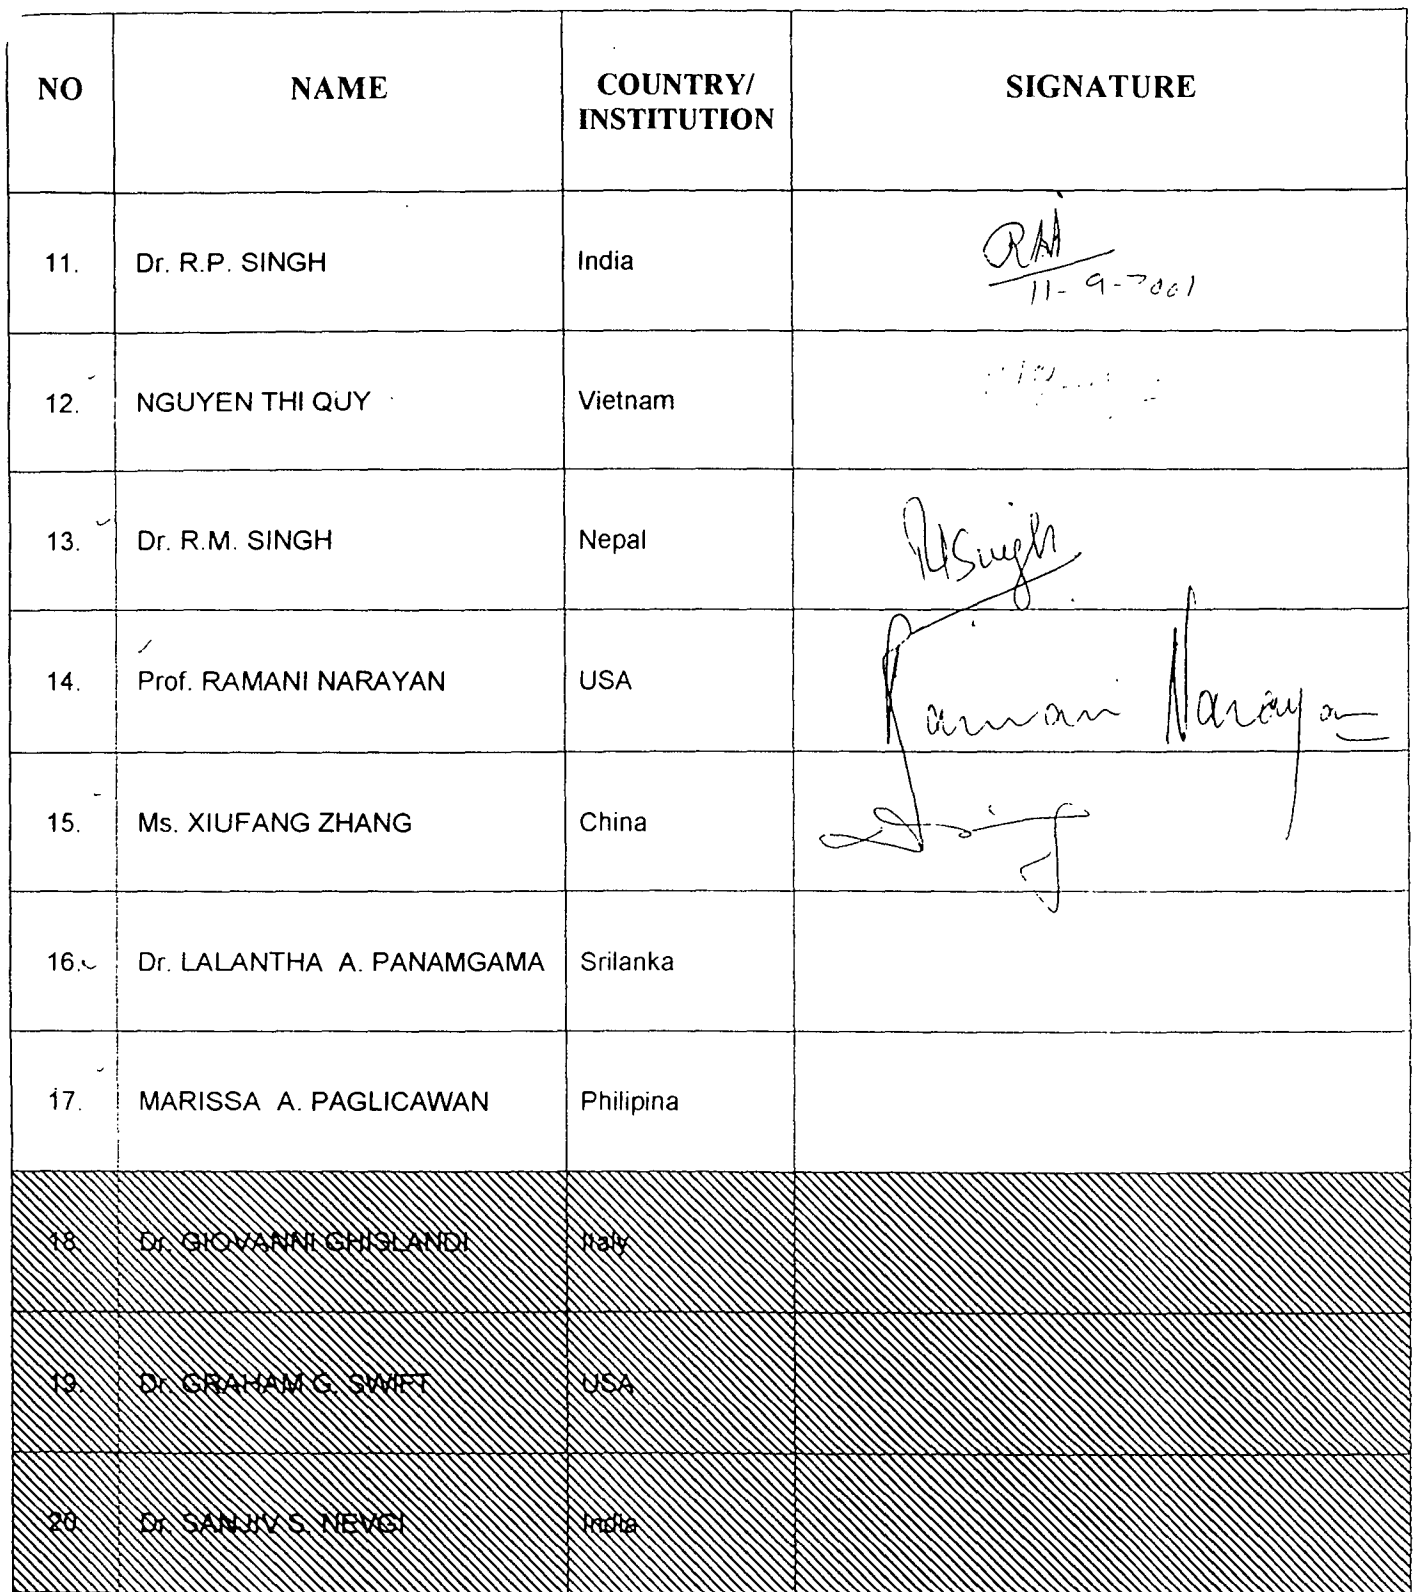 NO NAME COUNTRY/ SIGNATURE
INSTITUTION
11. Dr. R.P. SINGH India
11-9-2001
12. NGUYEN THI QUY Vietnam
13. Dr. R.M. SINGH Nepal RMSingh
14. Prof. RAMANI NARAYAN USA Ramani Narayan
15. Ms. XIUFANG ZHANG China
16. Dr. LALANTHA A. PANAMGAMA Srilanka
17. MARISSA A. PAGLICAWAN Philipina
18. Dr. GIOVANNI GHISLANDI Italy
19. Dr. GRAHAM G. SWIFT USA
20. Dr. SANJIV S. NEVGI India